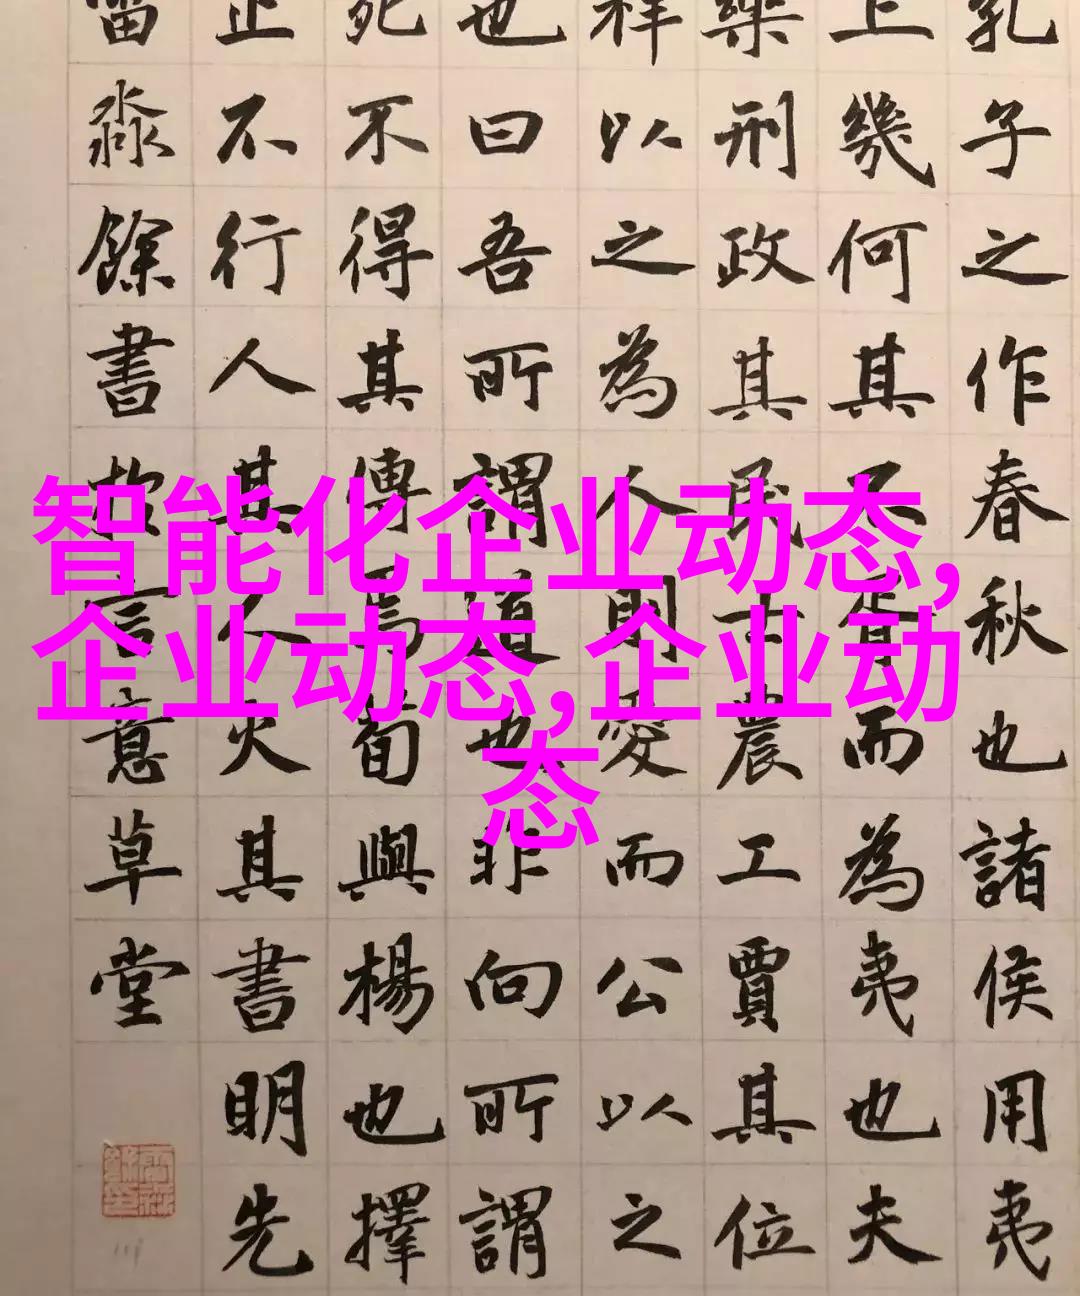 智能化企业动态,
企业动态,企业动
态
孔子之作春秋也諸侯用夷
上幾何其不胥而為夷也夫
樂刑政其民士農工賈其位
祥以之為人則愛而公以之
也曰吾所謂道也非向所謂
死不得其傳焉荀與楊也擇
止不行人其人火其書明先
淼餘書言意草堂